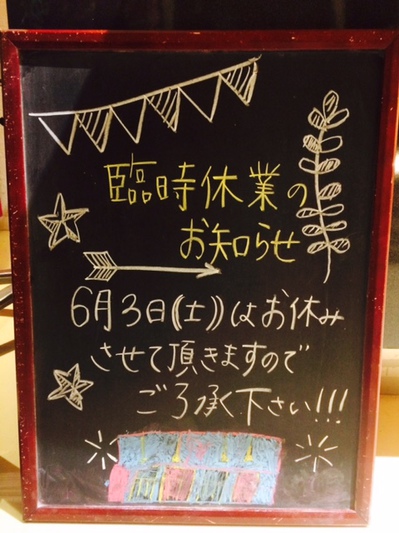 臨時休業の
お知らせ
6月3日(土)はお休み
させて頂きますので
ご了承下さい!!!